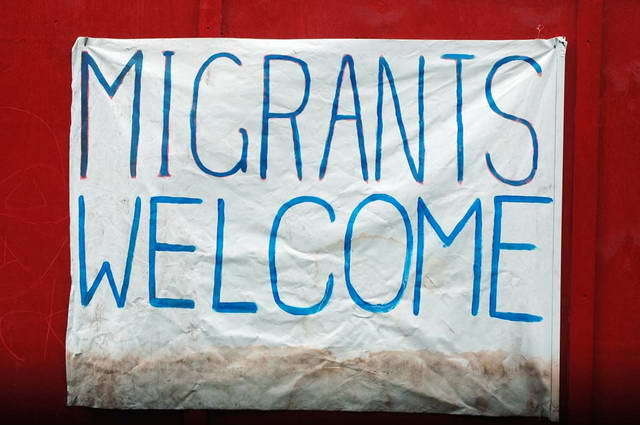 MIGRANTS
WELCOME